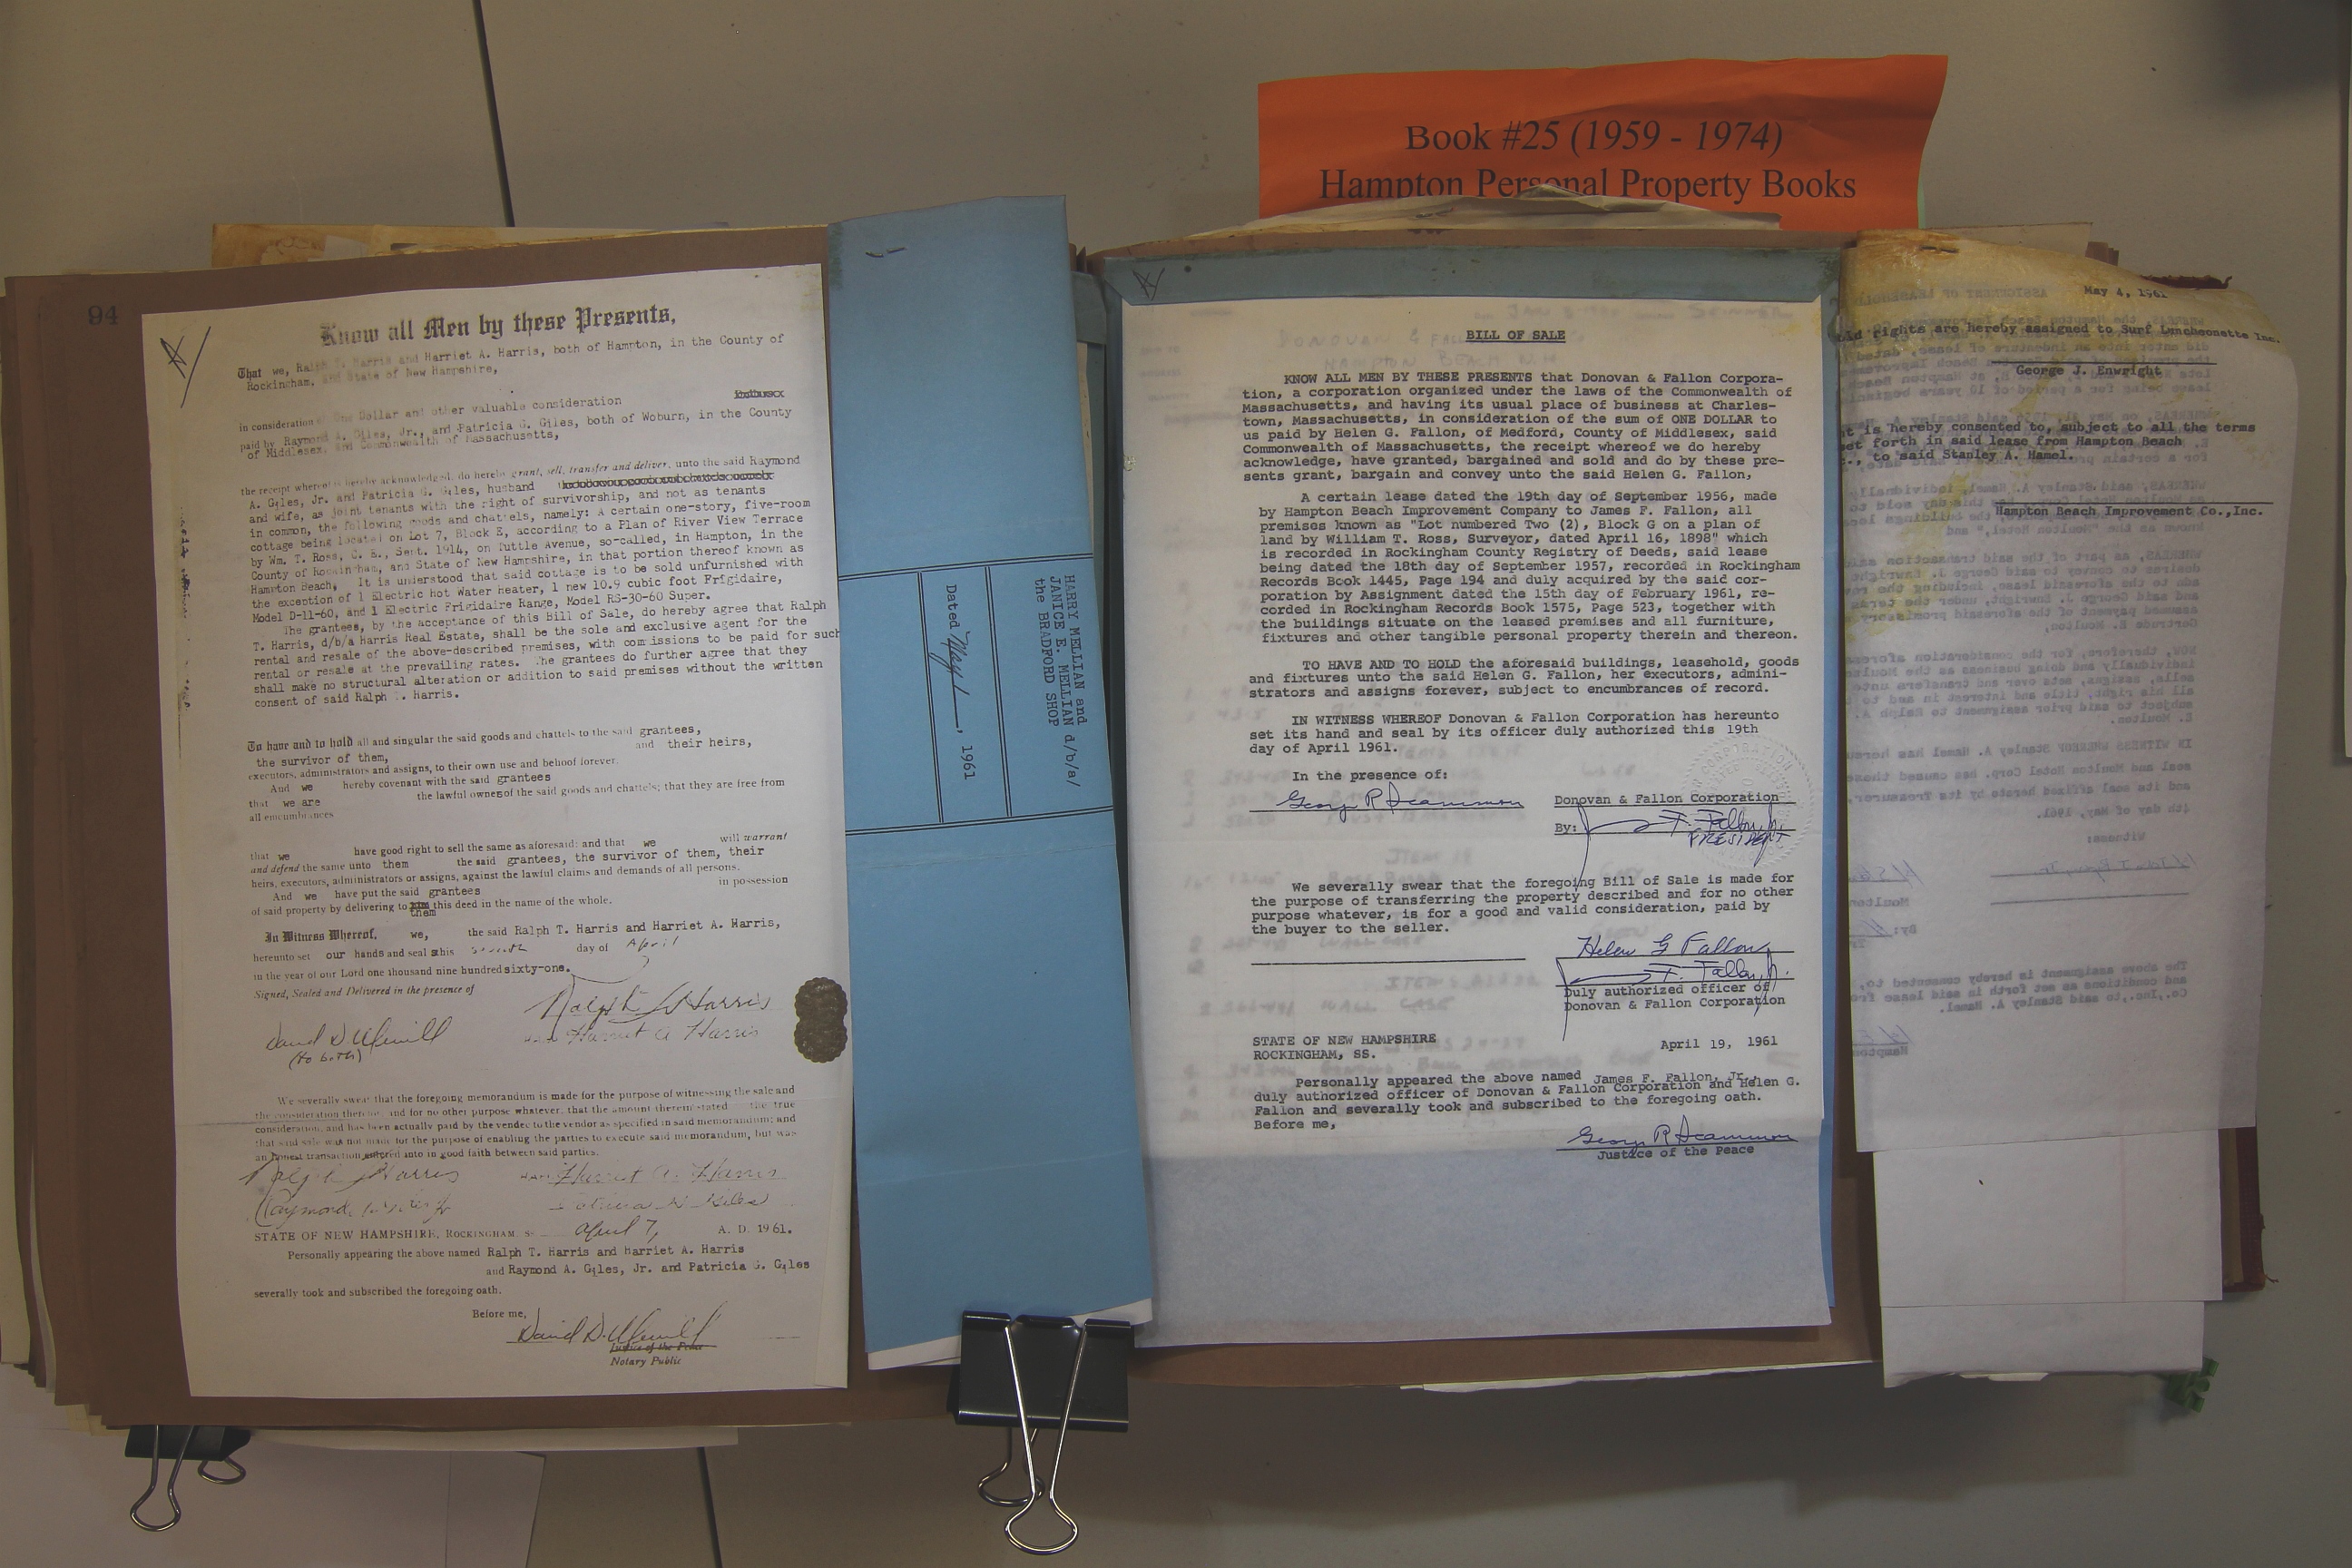 Book #25 (1959 - 1974)
Hampton Personal Property Books
94
Know all Men by these Presents,
That we, Ralph T. Harris and Harriet A. Harris, both of Hampton, in the County of
Rockingham, and State of New Hampshire,
in consideration of One Dollar and other valuable consideration
paid by Raymond A. Giles, Jr., and Patricia G. Giles, both of Woburn, in the County
of Middlesex, and Commonwealth of Massachusetts,
the receipt whereof is hereby acknowledged, do hereby grant, sell, transfer and deliver, unto the said Raymond
A. Giles, Jr. and Patricia G. Giles, husband
and wife, as joint tenants with the right of survivorship, and not as tenants
in common, the following goods and chattels, namely: A certain one-story, five-room
cottage being located on Lot 7, Block E, according to a Plan of River View Terrace
by Wm. T. Ross, C. E., Sept. 1914, on Tuttle Avenue, so-called, in Hampton, in the
County of Rockingham, and State of New Hampshire, in that portion thereof known as
Hampton Beach, It is understood that said cottage is to be sold unfurnished with
the exception of 1 Electric hot Water heater, 1 new 10.9 cubic foot Frigidaire,
Model D-11-60, and 1 Electric Frigidaire Range, Model RS-30-60 Super.
The grantees, by the acceptance of this Bill of Sale, do hereby agree that Ralph
T. Harris, d/b/a Harris Real Estate, shall be the sole and exclusive agent for the
rental and resale of the above-described premises, with commissions to be paid for such
rental or resale at the prevailing rates. The grantees do further agree that they
shall make no structural alteration or addition to said premises without the written
consent of said Ralph T. Harris.
To have and to hold all and singular the said goods and chattels to the said grantees,
the survivor of them, and their heirs,
executors, administrators and assigns, to their own use and behoof forever.
And we hereby covenant with the said grantees
that we are the lawful owners of the said goods and chattels; that they are free from
all encumbrances
that we have good right to sell the same as aforesaid; and that we will warrant
and defend the same unto them the said grantees, the survivor of them, their
heirs, executors, administrators or assigns, against the lawful claims and demands of all persons.
And we have put the said grantees in possession
of said property by delivering to him this deed in the name of the whole.
them
In Witness Whereof, we, the said Ralph T. Harris and Harriet A. Harris,
hereunto set our hands and seals this seventh day of April
in the year of our Lord one thousand nine hundred sixty-one.
Signed, Sealed and Delivered in the presence of
Ralph T Harris
Harriet A Harris
David D. Merrill
(to both)
We severally swear that the foregoing memorandum is made for the purpose of witnessing the sale and
the consideration thereof, and for no other purpose whatever, that the amount therein stated the true
consideration, and has been actually paid by the vendee to the vendor as specified in said memorandum; and
that said sale was not made for the purpose of enabling the parties to execute said memorandum, but was
an honest transaction entered into in good faith between said parties.
Ralph T Harris Harriet A. Harris
Raymond A. Giles Jr Patricia G. Giles
STATE OF NEW HAMPSHIRE, ROCKINGHAM, SS April 7, A. D. 1961.
Personally appearing the above named Ralph T. Harris and Harriet A. Harris
and Raymond A. Giles, Jr. and Patricia G. Giles
severally took and subscribed the foregoing oath.
Before me,
David D. Merrill
Justice of the Peace
Notary Public
HARRY MELLIAN and
JANICE E. MELLIAN d/b/a/
the BRADFORD SHOP
Dated May 1, 1961
BILL OF SALE
KNOW ALL MEN BY THESE PRESENTS that Donovan & Fallon Corpora-
tion, a corporation organized under the laws of the Commonwealth of
Massachusetts, and having its usual place of business at Charles-
town, Massachusetts, in consideration of the sum of ONE DOLLAR to
us paid by Helen G. Fallon, of Medford, County of Middlesex, said
Commonwealth of Massachusetts, the receipt whereof we do hereby
acknowledge, have granted, bargained and sold and do by these pre-
sents grant, bargain and convey unto the said Helen G. Fallon,
A certain lease dated the 19th day of September 1956, made
by Hampton Beach Improvement Company to James F. Fallon, all
premises known as "Lot numbered Two (2), Block G on a plan of
land by William T. Ross, Surveyor, dated April 16, 1898" which
is recorded in Rockingham County Registry of Deeds, said lease
being dated the 18th day of September 1957, recorded in Rockingham
Records Book 1445, Page 194 and duly acquired by the said cor-
poration by Assignment dated the 15th day of February 1961, re-
corded in Rockingham Records Book 1575, Page 523, together with
the buildings situate on the leased premises and all furniture,
fixtures and other tangible personal property therein and thereon.
TO HAVE AND TO HOLD the aforesaid buildings, leasehold, goods
and fixtures unto the said Helen G. Fallon, her executors, admini-
strators and assigns forever, subject to encumbrances of record.
IN WITNESS WHEREOF Donovan & Fallon Corporation has hereunto
set its hand and seal by its officer duly authorized this 19th
day of April 1961.
In the presence of:
George R Scammon
Donovan & Fallon Corporation
By: J F. Fallon, Jr.
PRESIDENT
We severally swear that the foregoing Bill of Sale is made for
the purpose of transferring the property described and for no other
purpose whatever, is for a good and valid consideration, paid by
the buyer to the seller.
Helen G Fallon
J F. Fallon, Jr.
Duly authorized officer of
Donovan & Fallon Corporation
STATE OF NEW HAMPSHIRE
ROCKINGHAM, SS.
April 19, 1961
Personally appeared the above named James F. Fallon, Jr.,
duly authorized officer of Donovan & Fallon Corporation and Helen G.
Fallon and severally took and subscribed to the foregoing oath.
Before me,
George R Scammon
Justice of the Peace
May 4, 1961
rights are hereby assigned to Surf Luncheonette Inc.
George J. Enwright
is hereby consented to, subject to all the terms
set forth in said lease from Hampton Beach
to said Stanley A. Hamel.
Hampton Beach Improvement Co.,Inc.